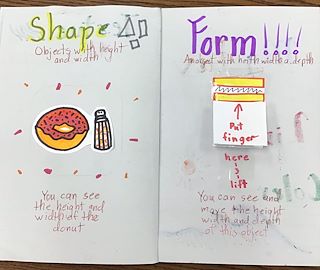 Shape
Objects with height
and width
You can see
the height and
width of the
donut
Form!!!!
An object with heith width & depth
Put
finger
here
lift
You can see and
move the height
width and depth
of this object